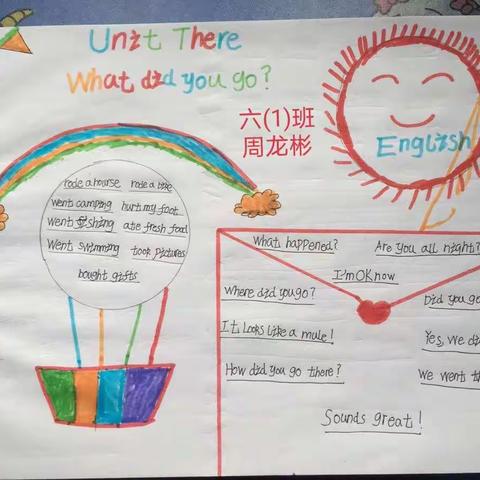 Unit There
What did you go?
六(1)班
周龙彬
English
rode a hourse rode a bike
went camping hurt my foot
went fishing ate fresh food
Went swimming took pictures
bought gifts
What happened? Are you all right?
I'm OK now
Where did you go? Did you go
It Looks like a mule! Yes, We di
How did you go there? We went th
Sounds great!